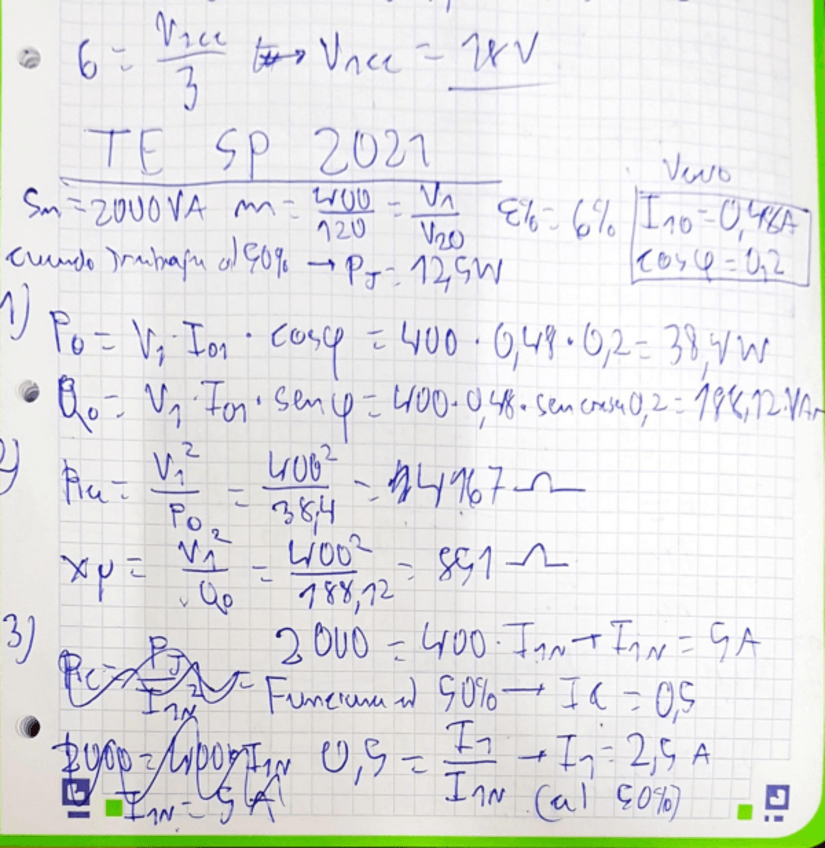 6 = V1cc / 3 → V1cc = 18V
TE SP 2021
Vacío
Sn = 2000VA m = 400/120 = V1/V20 ε% = 6% I10 = 0,48A
cuando trabaja al 50% → PJ = 12,5W cosφ = 0,2
1) P0 = V1 · I01 · cosφ = 400 · 0,48 · 0,2 = 38,4W
Q0 = V1 · I01 · senφ = 400 · 0,48 · sen 0,2 = 188,12 VAr
2) V1² / P0 = 400² / 38,4 = 4167 Ω
Xμ = V1² / Q0 = 400² / 188,12 = 851 Ω
3) 2000 = 400 · I1N → I1N = 5A
Rc = PJ / I1N² = Funciona al 50% → IC = 0,5
2000 = 400 · I1N 0,5 = I1 / I1N → I1 = 2,5 A
I1N = 5A (al 50%)